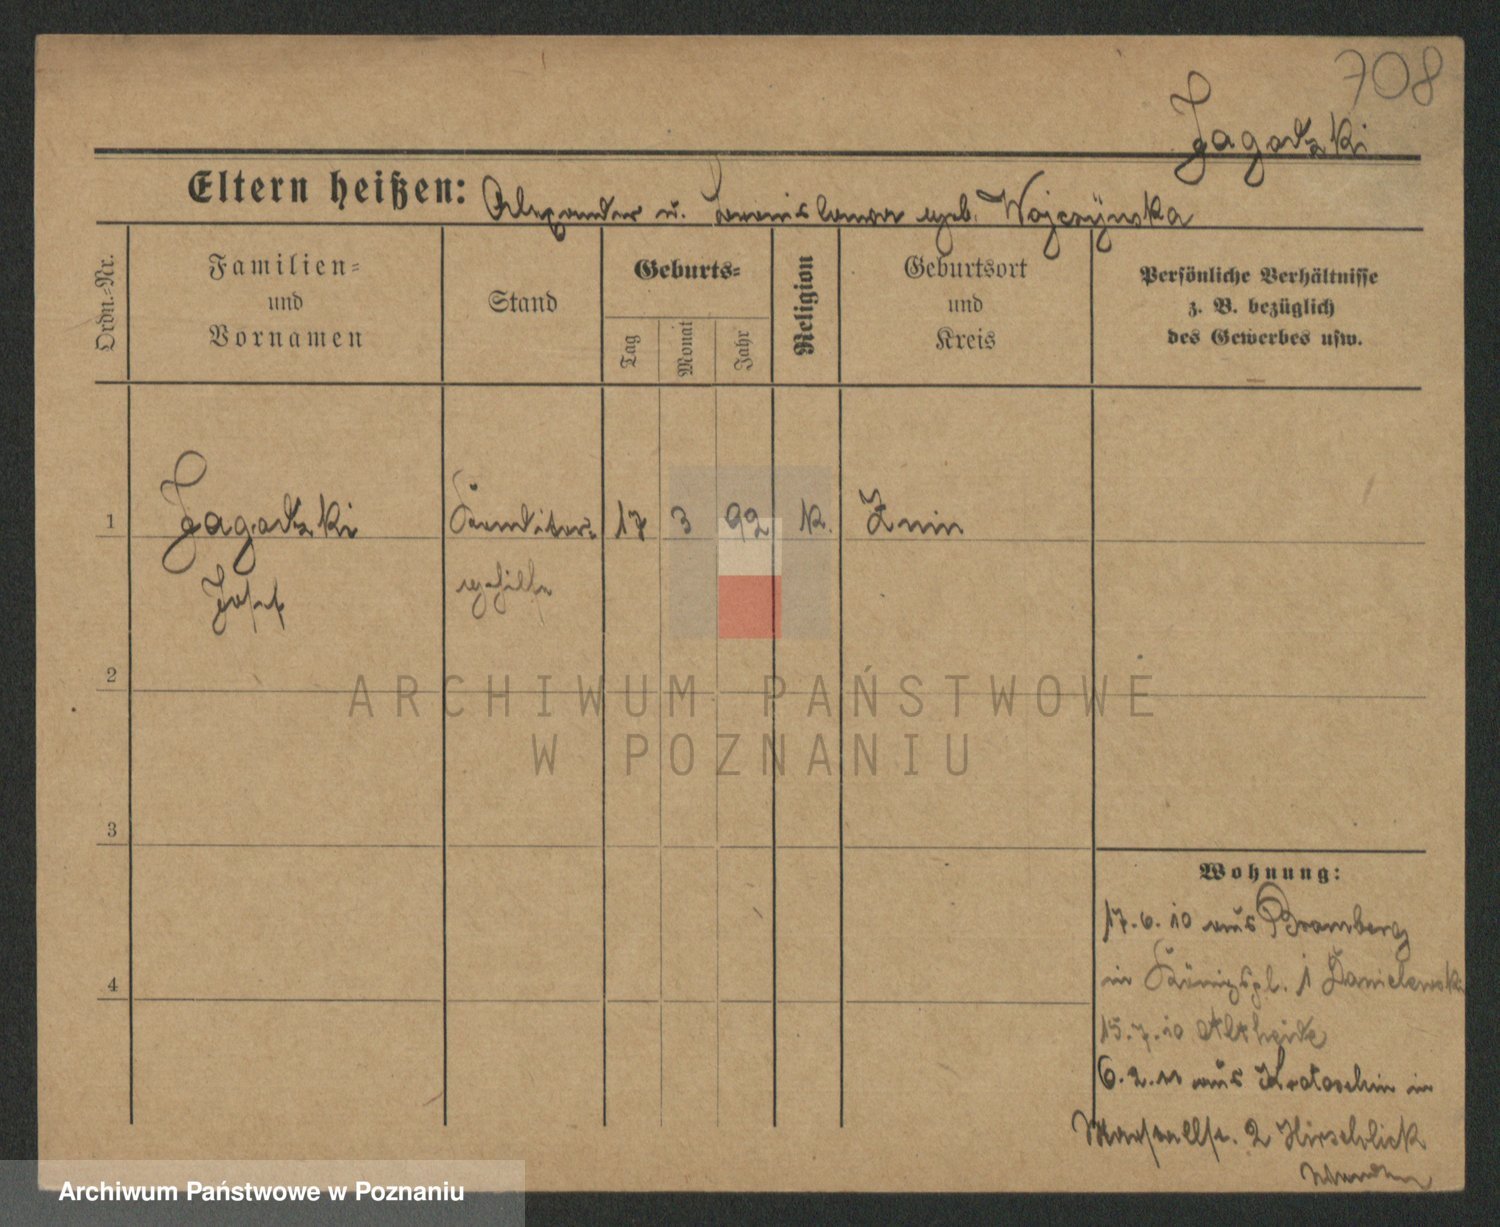 708
Jagodzki
Eltern heißen: Alexander u. geb. Wojczynska
Ordn.-Nr.
Familien-
und
Vornamen
Stand
Geburts-
Tag
Monat
Jahr
Religion
Geburtsort
und
Kreis
Persönliche Verhältnisse
z. B. bezüglich
des Gewerbes usw.
1
Jagodzki
Josef
Konditor-
gehilfe
17
3
92
k.
Znin
2
3
4
Wohnung:
17.6.10 aus Bromberg
in Königspl. 1 Danielewski
15.7.10 Altheide
6.2.11 aus Krotoschin in
2 Hirschlick
ARCHIWUM PAŃSTWOWE
W POZNANIU
Archiwum Państwowe w Poznaniu